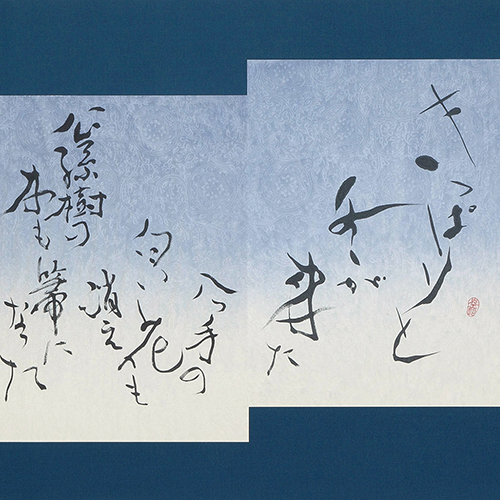 きっぱりと
冬が
来た
八つ手の
白い花
も
消え
公孫樹の
木も箒に
なった